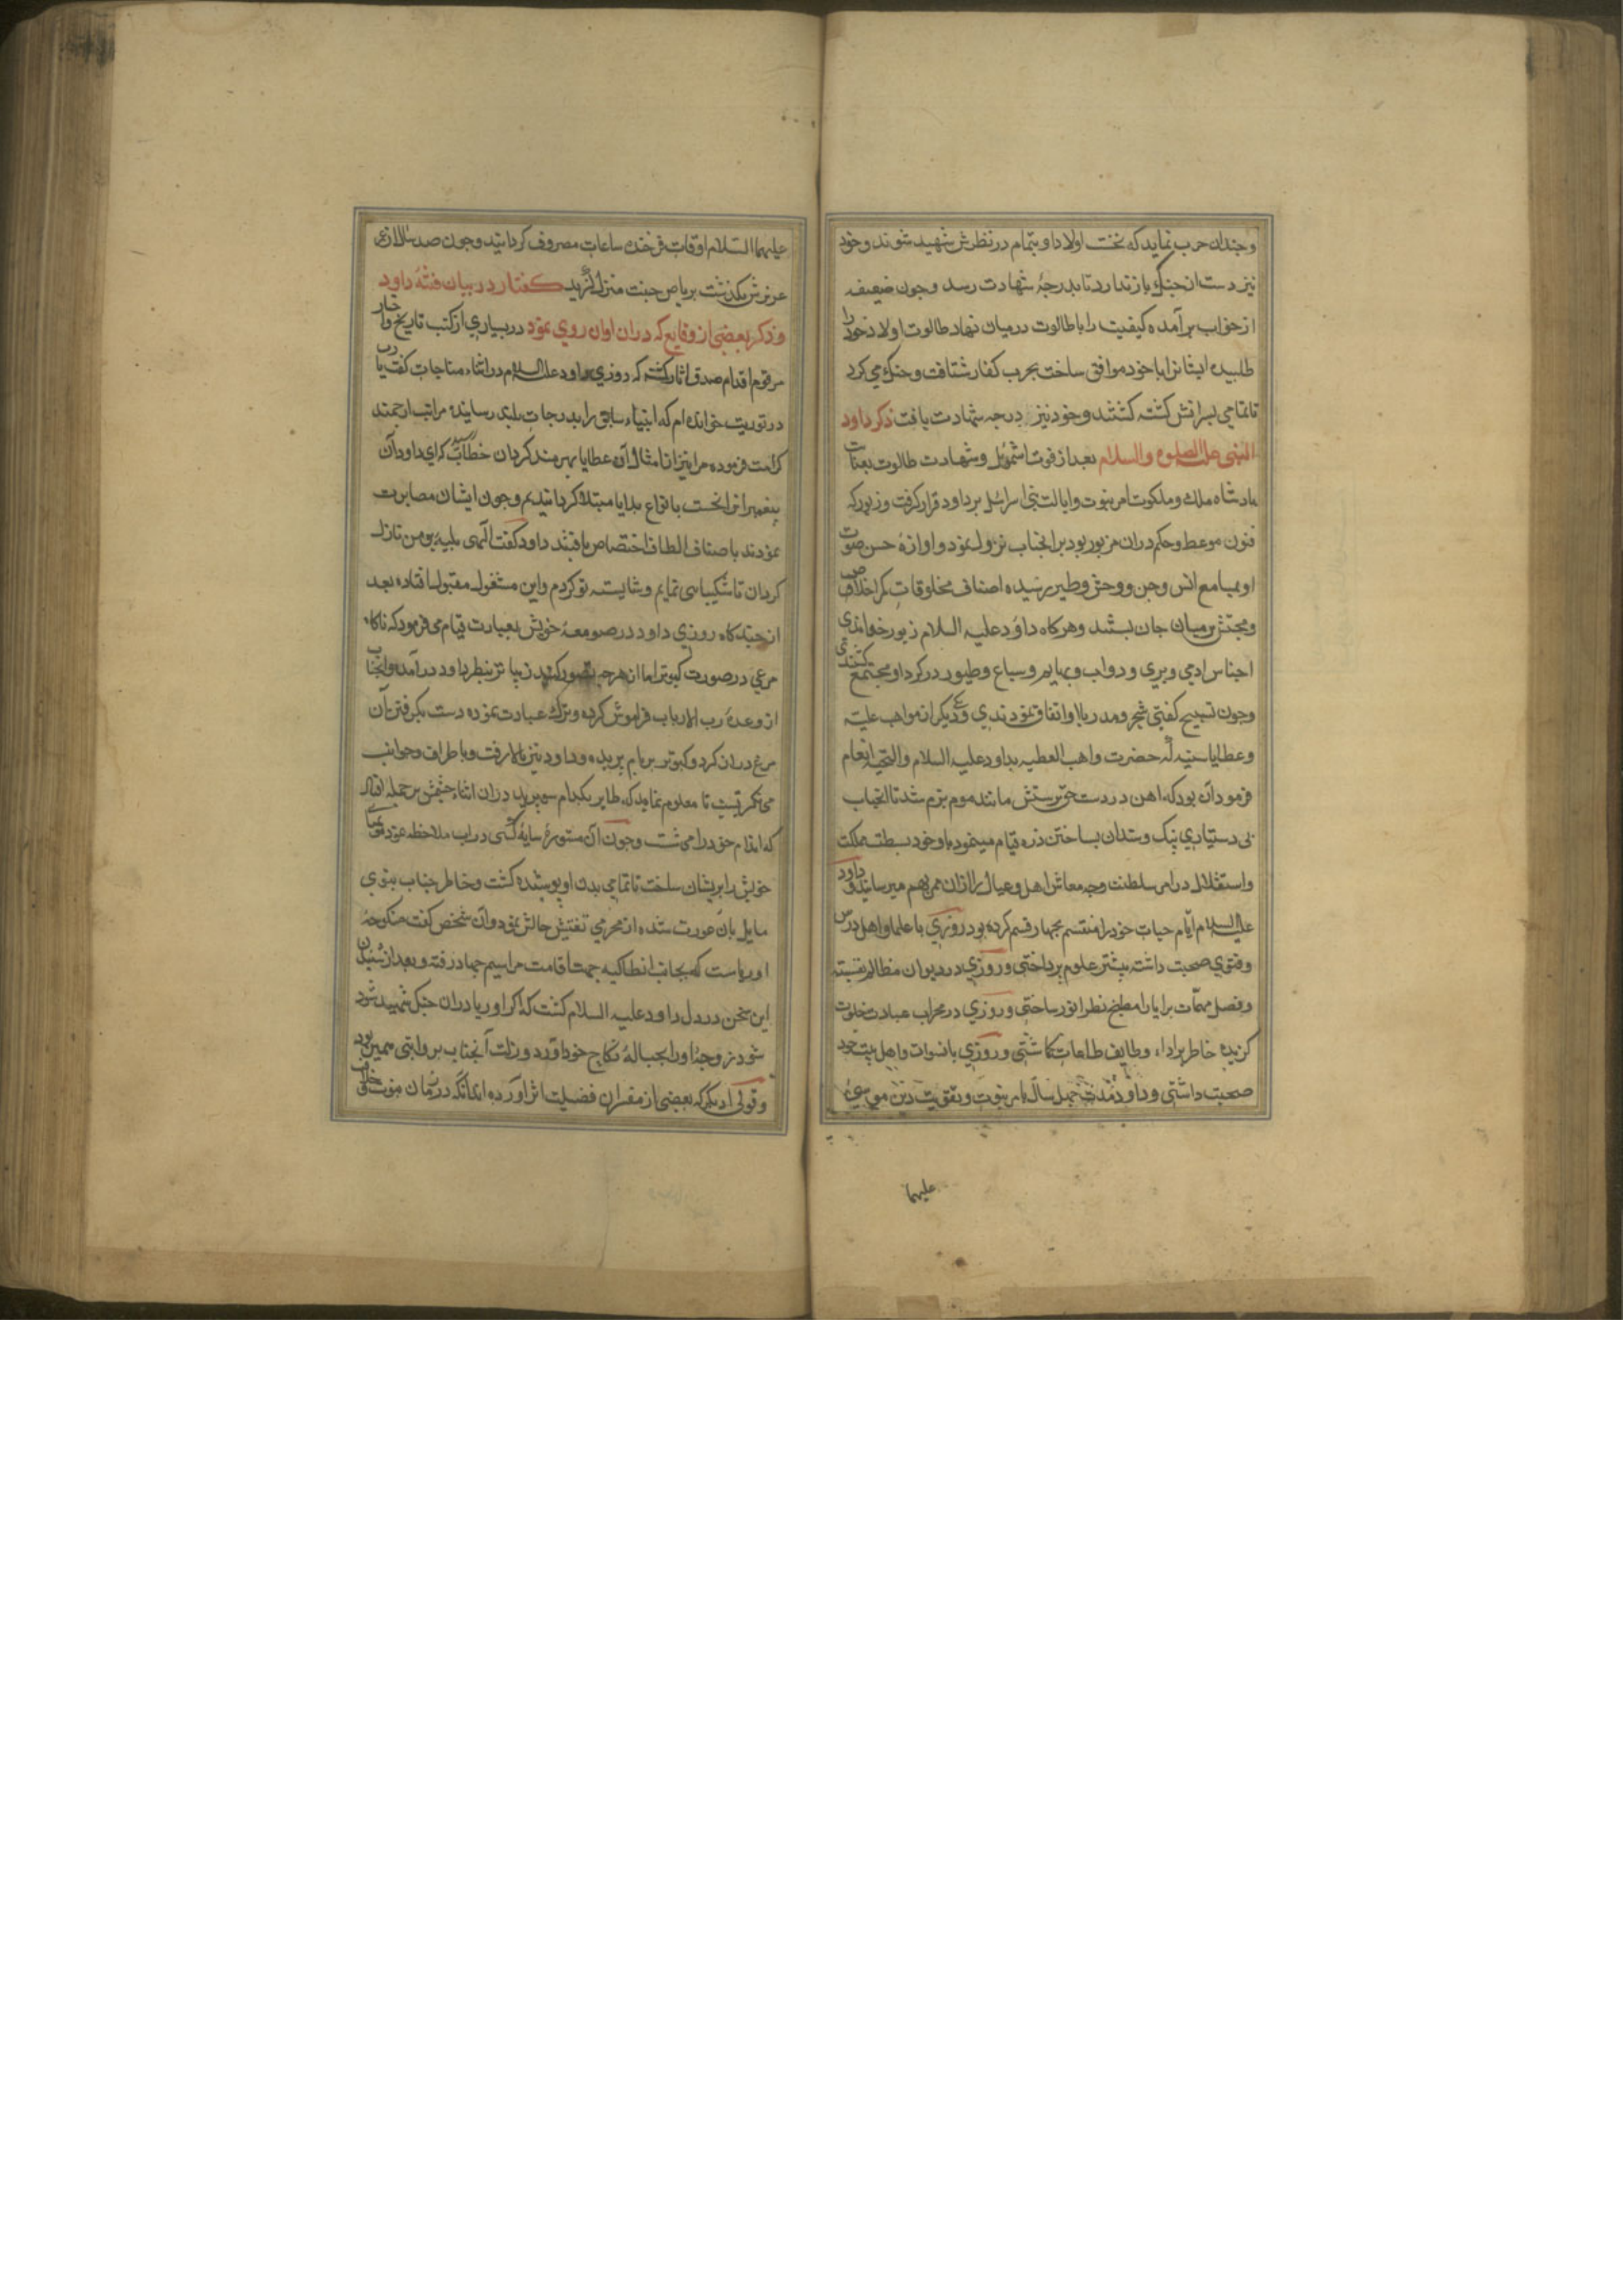 وجندان حرب نماید که نخست اولاد او بتمام در نظرش شهید شوند و خود
نیز دست از جنك باز ندارد تا بدرجهٔ شهادت رسد وجون ضعیفه
از خواب برآمده کیفیت را با طالوت در میان نهاد طالوت اولاد خود را
طلبیده ایشانرا با خود موافق ساخت بحرب کفار شتافت و جنك می کرد
تا تمامی پسرانش کشته کشتند و خود نیز درجه شهادت یافت ذکر داود
النبی علیه الصلوه والسلام بعد از فوت اشموئیل و شهادت طالوت بعنایت
پادشاه ملك و ملکوت امر نبوت و ایالت بنی اسرائیل بر داود قرار کرفت و زبور که
فنون موعظ و حکم دران مزبور بود بر آنجناب نزول نمود و اوازهٔ حسن صوت
او بمسامع انس و جن و وحش و طیر رسیده اصناف مخلوقات کمر اخلاص
و محبتش بر میان جان بستند و هرکاه داود علیه السلام زبور خواندی
اجناس ادمی و پری و دواب و بهایم و سباع و طیور در کرد او مجتمع کشتندی
وجون تسبیح کفتی شجر و مدر با او اتفاق نمودندی و دیکر از مواهب علیه
و عطایا سنیه که حضرت واهب العطیه بداود علیه السلام والتحیه انعام
فرمود آن بود که اهن در دست حق پرستش مانند موم نرم شد تا آنجناب
بی دستیاری پتک و سندان بساختن زره قیام مینمود و با وجود بسطت مملکت
و استقلال در امر سلطنت وجه معاش اهل و عیال را ازان ممر بهم میرسانید و داود
علیه السلام ایام حیات خود را منقسم بچهار قسم کرده بود روزی با علما و اهل درس
و فتوی صحبت داشته بنشر علوم پرداختی و روزی در دیوان مظالم نشسته
و فصل مهمات برایا را مطمح نظر انور ساختی و روزی در محراب عبادت خلوت
کزیده خاطر بر اداء وظایف طاعات کماشتی و روزی با نسوان و اهل بیت خود
صحبت داشتی و داود مدت چهل سال بامر نبوت و تقویت دین موسی
علیهما
علیهما السلام اوقات فرخنده ساعات مصروف کردانید وجون صد سال از
عزیزش بکذشت بریاض جنت منزل کزید کفتار در بیان فتنهٔ داود
و ذکر بعضی از وقایع که دران اوان روی نمود در بسیاری از کتب تاریخ و اخبار
مرقوم اقدام صدق اثار کشته که روزی داود علیه السلام در اثناء مناجات کفت یا رب
در توریت خوانده ام که انبیاء سابق را بدرجات بلند رسانیده مراتب ارجمند
کرامت فرموده مرا نیز از امثال آن عطایا بهره مند کردان خطاب رسید که ای داود آن
پیغمبرانرا نخست بانواع بلایا مبتلا کردانیدیم وجون ایشان مصابرت
نمودند باصناف الطاف اختصاص یافتند داود کفت الهی بلیه بر من نازل
کردان تا شکیبایی نمایم و شایسته تو کردم و این مسئول مقبول افتاده بعد
از چند کاه روزی داود در صومعهٔ خویش بعبادت قیام می فرمود که ناکاه
مرغی در صورت کبوتر اما از هرچه تصور کنند زیباتر بنظر داود در آمد و آنجناب
از وعدهٔ رب الارباب فراموش کرده و ترك عبادت نموده دست بکرفتن آن
مرغ دراز کرد و کبوتر بر بام پریده و داود نیز بالا رفت و باطراف و جوانب
می نکریست تا معلوم نماید که طایر بکدام سو پرید دران اثناء چشمش بر جمیله افتاد
که اندام خود را می شست وجون آن مستوره سایهٔ کسی در اب ملاحظه نمود موی
خویش را پریشان ساخت تا تمامی بدن او پوشیده کشت و خاطر جناب نبوی
مایل بان عورت شده از محرمی تفتیش حالش نمود و آن شخص کفت منکوحهٔ
اوریاست که بجانب انطاکیه جهت اقامت مراسم جهاد رفته و بعد از شنیدن
این سخن در دل داود علیه السلام کشت که اکر اوریا دران جنك شهید شود
شود زوجهٔ او را بحبالهٔ نکاح خود آورد و زلت آنجناب بروایتی همین بود
و قولی دیکر که بعضی از مفسران فضیلت اثر آورده اند آنکه در زمان